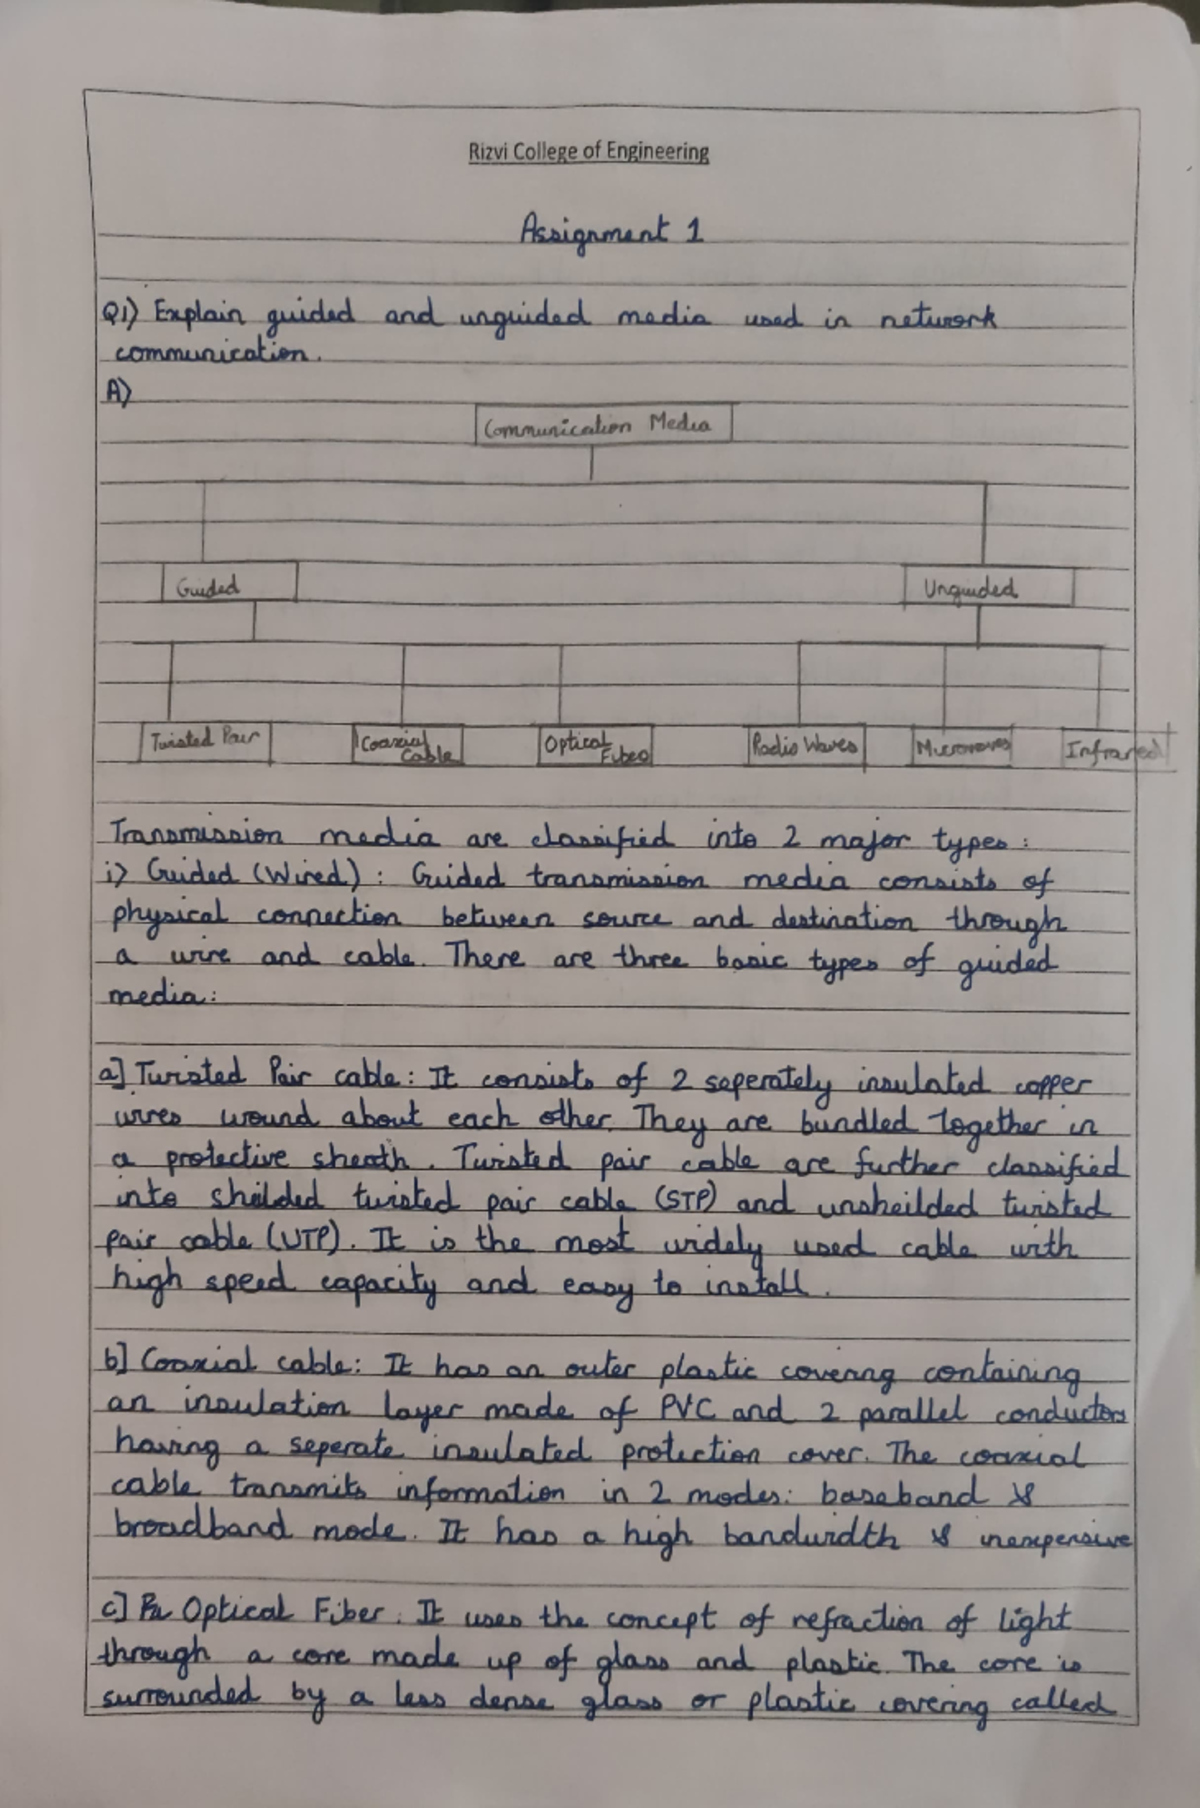 Rizvi College of Engineering
Assignment 1
Q1) Explain guided and unguided media used in network
communication.
A)
Communication Media
Guided Unguided
Twisted Pair Coaxial Cable Optical Fiber Radio Waves Microwaves Infrared
Transmission media are classified into 2 major types:
i) Guided (Wired): Guided transmission media consists of
physical connection between source and destination through
a wire and cable. There are three basic types of guided
media:
a] Twisted Pair cable: It consists of 2 seperately insulated copper
wires wound about each other. They are bundled together in
a protective sheath. Twisted pair cable are further classified
into sheilded twisted pair cable (STP) and unsheilded twisted
pair cable (UTP). It is the most widely used cable with
high speed capacity and easy to install.
b] Coaxial cable: It has an outer plastic covering containing
an insulation layer made of PVC and 2 parallel conductors
having a seperate insulated protection cover. The coaxial
cable transmits information in 2 modes: baseband &
broadband mode. It has a high bandwidth & inexpensive
c] Optical Fiber: It uses the concept of refraction of light
through a core made up of glass and plastic. The core is
surrounded by a less dense glass or plastic covering called